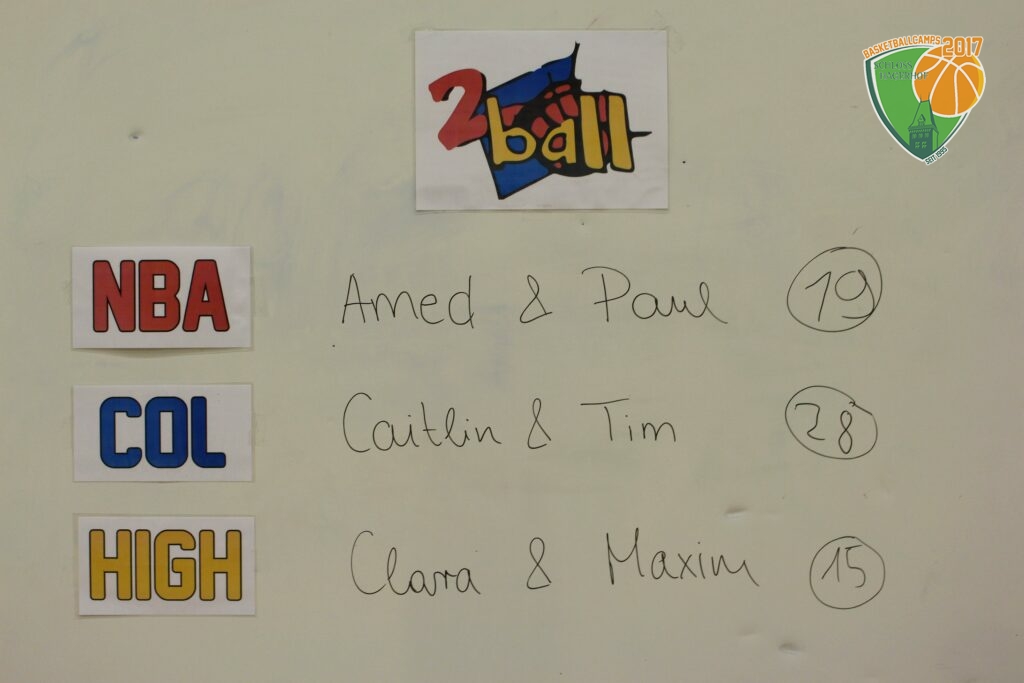 BASKETBALLCAMPS 2017
SCHLOSS
HAGERHOF
SEIT 1995
2ball
NBA Amed & Paul 19
COL Caitlin & Tim 28
HIGH Clara & Maxim 15